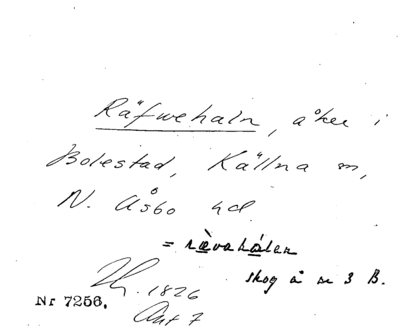 Räfwehaln, åker i
Bolestad, Källna sn,
N. Åsbo hd.
= rævahålen
skog å nr 3 B.
Lh. 1826
Akt 7
Nr 7256.